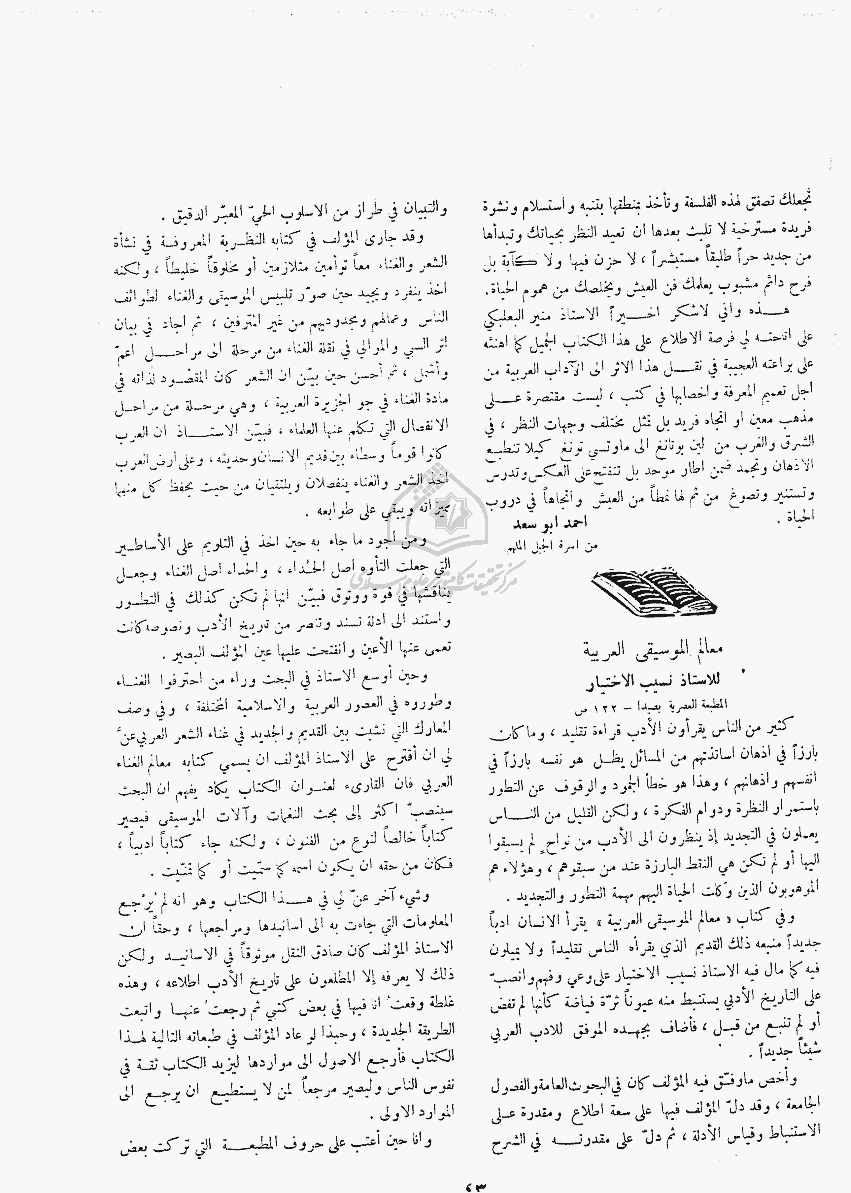 تجعلك تصفق لهذه الفلسفة وتأخذ بمنطقها بتنبه وأستسلام ونشوة
فريدة مسترخية لا تلبث بعدها ان تعيد النظر بحياتك وتبدأها
من جديد حراً طليقاً مستبشراً ، لا حزن فيها ولا كآبة بل
فرح دائم مشبوب يعلمك فن العيش ويخلصك من هموم الحياة.
هـذه واني لاشكر اخـيراً الاستاذ منير البعلبكي
على اتاحتـه لي فرصة الاطلاع على هذا الكتاب الجميل كما اهنئه
على براعته العجيبة في نقـل هذا الاثر الى الآداب العربية من
أجل تعميم المعرفة واخصابها في كتب ، ليست مقتصرة عـلى
مذهب معين او اتجاه فريد بل تمثل مختلف وجهات النظر ، في
الشرق والغرب من لين يوتانغ الى ماوتسي تونغ كيلا تنطبع
الاذهان وتجمد ضمن اطار موحد بل تنفتح على العكس وتدرس
وتستنير وتصوغ من ثم لها نمطاً من العيش واتجاهاً في دروب
الحياة .
احمد ابو سعد
من اسرة الجبل الملهم
معالم الموسيقى العربية
للاستاذ نسيب الاختيار
المطبعة العصرية بصيدا – ١٢٢ ص
كثير من الناس يقرأون الأدب قراءة تقليد ، وما كان
بارزاً في اذهان اساتذتهم من المسائل يظـل هو نفسه بارزاً في
انفسهم واذهانهم ، وهذا هو خطأ الجمود والوقوف عن التطور
باستمرار النظرة ودوام الفكرة ، ولكن القليل من النـاس
يعملون في التجديد إذ ينظرون الى الأدب من نواح لم يسبقوا
اليها أو لم تكن هي النقط البارزة عند من سبقوهم ، وهؤلاء هم
الموهوبون الذين وكلت الحياة اليهم مهمة التطور والتجديد .
وفي كتاب « معالم الموسيقى العربية » يقرأ الانسان ادباً
جديداً منبعه ذلك القديم الذي يقرأه الناس تقليداً ولا يميلون
فيه كما مال فيه الاستاذ نسيب الاختيار على وعي وفهم وانصبّ
على التاريخ الأدبي يستنبط منه عيوناً ثرّة فياضة كأنها لم تفض
أو لم تنبع من قبـل ، فأضاف بجهـده الموفق للادب العربي
شيئاً جديداً .
وأخص ما وفـّق فيه المؤلف كان في البحوث العامة والفصول
الجامعة ، وقد دلّ المؤلف فيها على سعة اطلاع ومقدرة عـلى
الاستنباط وقياس الأدلة ، ثم دلّ على مقدرتـه في الشرح
والتبيان في طراز من الاسلوب الحيّ المعبّر الدقيق .
وقد جارى المؤلف في كتابه النظرية المعروفة في نشأة
الشعر والغناء معاً توأمين متلازمين أو مخلوقاً خليطاً ، ولكنه
اخذ ينفرد ويجيد حين صوّر تلبيس الموسيقى والغناء لطوائف
الناس وعمالهم ومجدوديهم من غير المترفين ، ثم اجاد في بيان
اثر السبي والموالي في نقلة الغناء من مرحلة الى مراحـل اعمّ
وأشمل ، ثم أحسن حين بيّن ان الشعر كان المقصود لذاته في
مادة الغناء في جو الجزيرة العربية ، وهي مرحلة من مراحـل
الانفصال التي تكلم عنها العلماء ، فبيّن الاستـاذ ان العرب
كانوا قوماً وسطاء بين قديم الانسان وحديثه ، وعلى أرض العرب
اخذ الشعر والغناء ينفصلان ويلتقيان من حيث يحفظ كل منهما
ميزاته ويبقى على طوابعه .
ومن أجود ما جاء به حين اخذ في التلويم على الأساطـير
التي جعلت التأوه اصل الحـُداء ، والحداء اصل الغناء وجعـل
يناقشها في قوة ووثوق فبيّن انها لم تكن كذلك في التطور
واستند الى ادلة تسند وتناصر من تاريخ الأدب ونصوصه كانت
تعمى عنها الأعين وانفتحت عليها عين المؤلف البصير .
وحين أوسع الاستاذ في البحث وراء من احترفوا الغنـاء
وطوروه في العصور العربية والاسلامية المختلفة ، وفي وصف
المعارك التي نشبت بين القديم والجديد في غناء الشعر العربي عنّ
لي ان أقترح على الاستاذ المؤلف ان يسمي كتابه معالم الغناء
العربي فان القارىء لعنـوان الكتاب يكاد يفهم ان البحث
سينصبّ اكثر إلى بحث النغمات وآلات الموسيقى فيصير
كتاباً خالصاً لنوع من الفنون ، ولكنه جاء كتاباً ادبياً ،
فكان من حقه ان يكون اسمه كما سمّيت أو كما تمنّيت .
وشيء آخر عنّ لي في هـذا الكتاب وهو انه لم يُرجع
المعلومات التي جاءت به الى اسانيدها ومراجعها ، وحقاً ان
الاستاذ المؤلف كان صادق النقل موثوقاً في الاسانيـد ولكن
ذلك لا يعرفه إلا المطلعون على تاريخ الأدب اطلاعه ، وهذه
غلطة وقعتُ انا فيها في بعض كتبي ثم رجعتُ عنهـا واتبعت
الطريقة الجديدة ، وحبذا لو عاد المؤلف في طبعاته التالية لهـذا
الكتاب فأرجع الاصول الى مواردها ليزيد الكتاب ثقـة في
نفوس الناس وليصير مرجعاً لمن لا يستطيع ان يرجع الى
الموارد الاولى .
وانا حين أعتب على حروف المطبعـة التي تركت بعض
٤٣